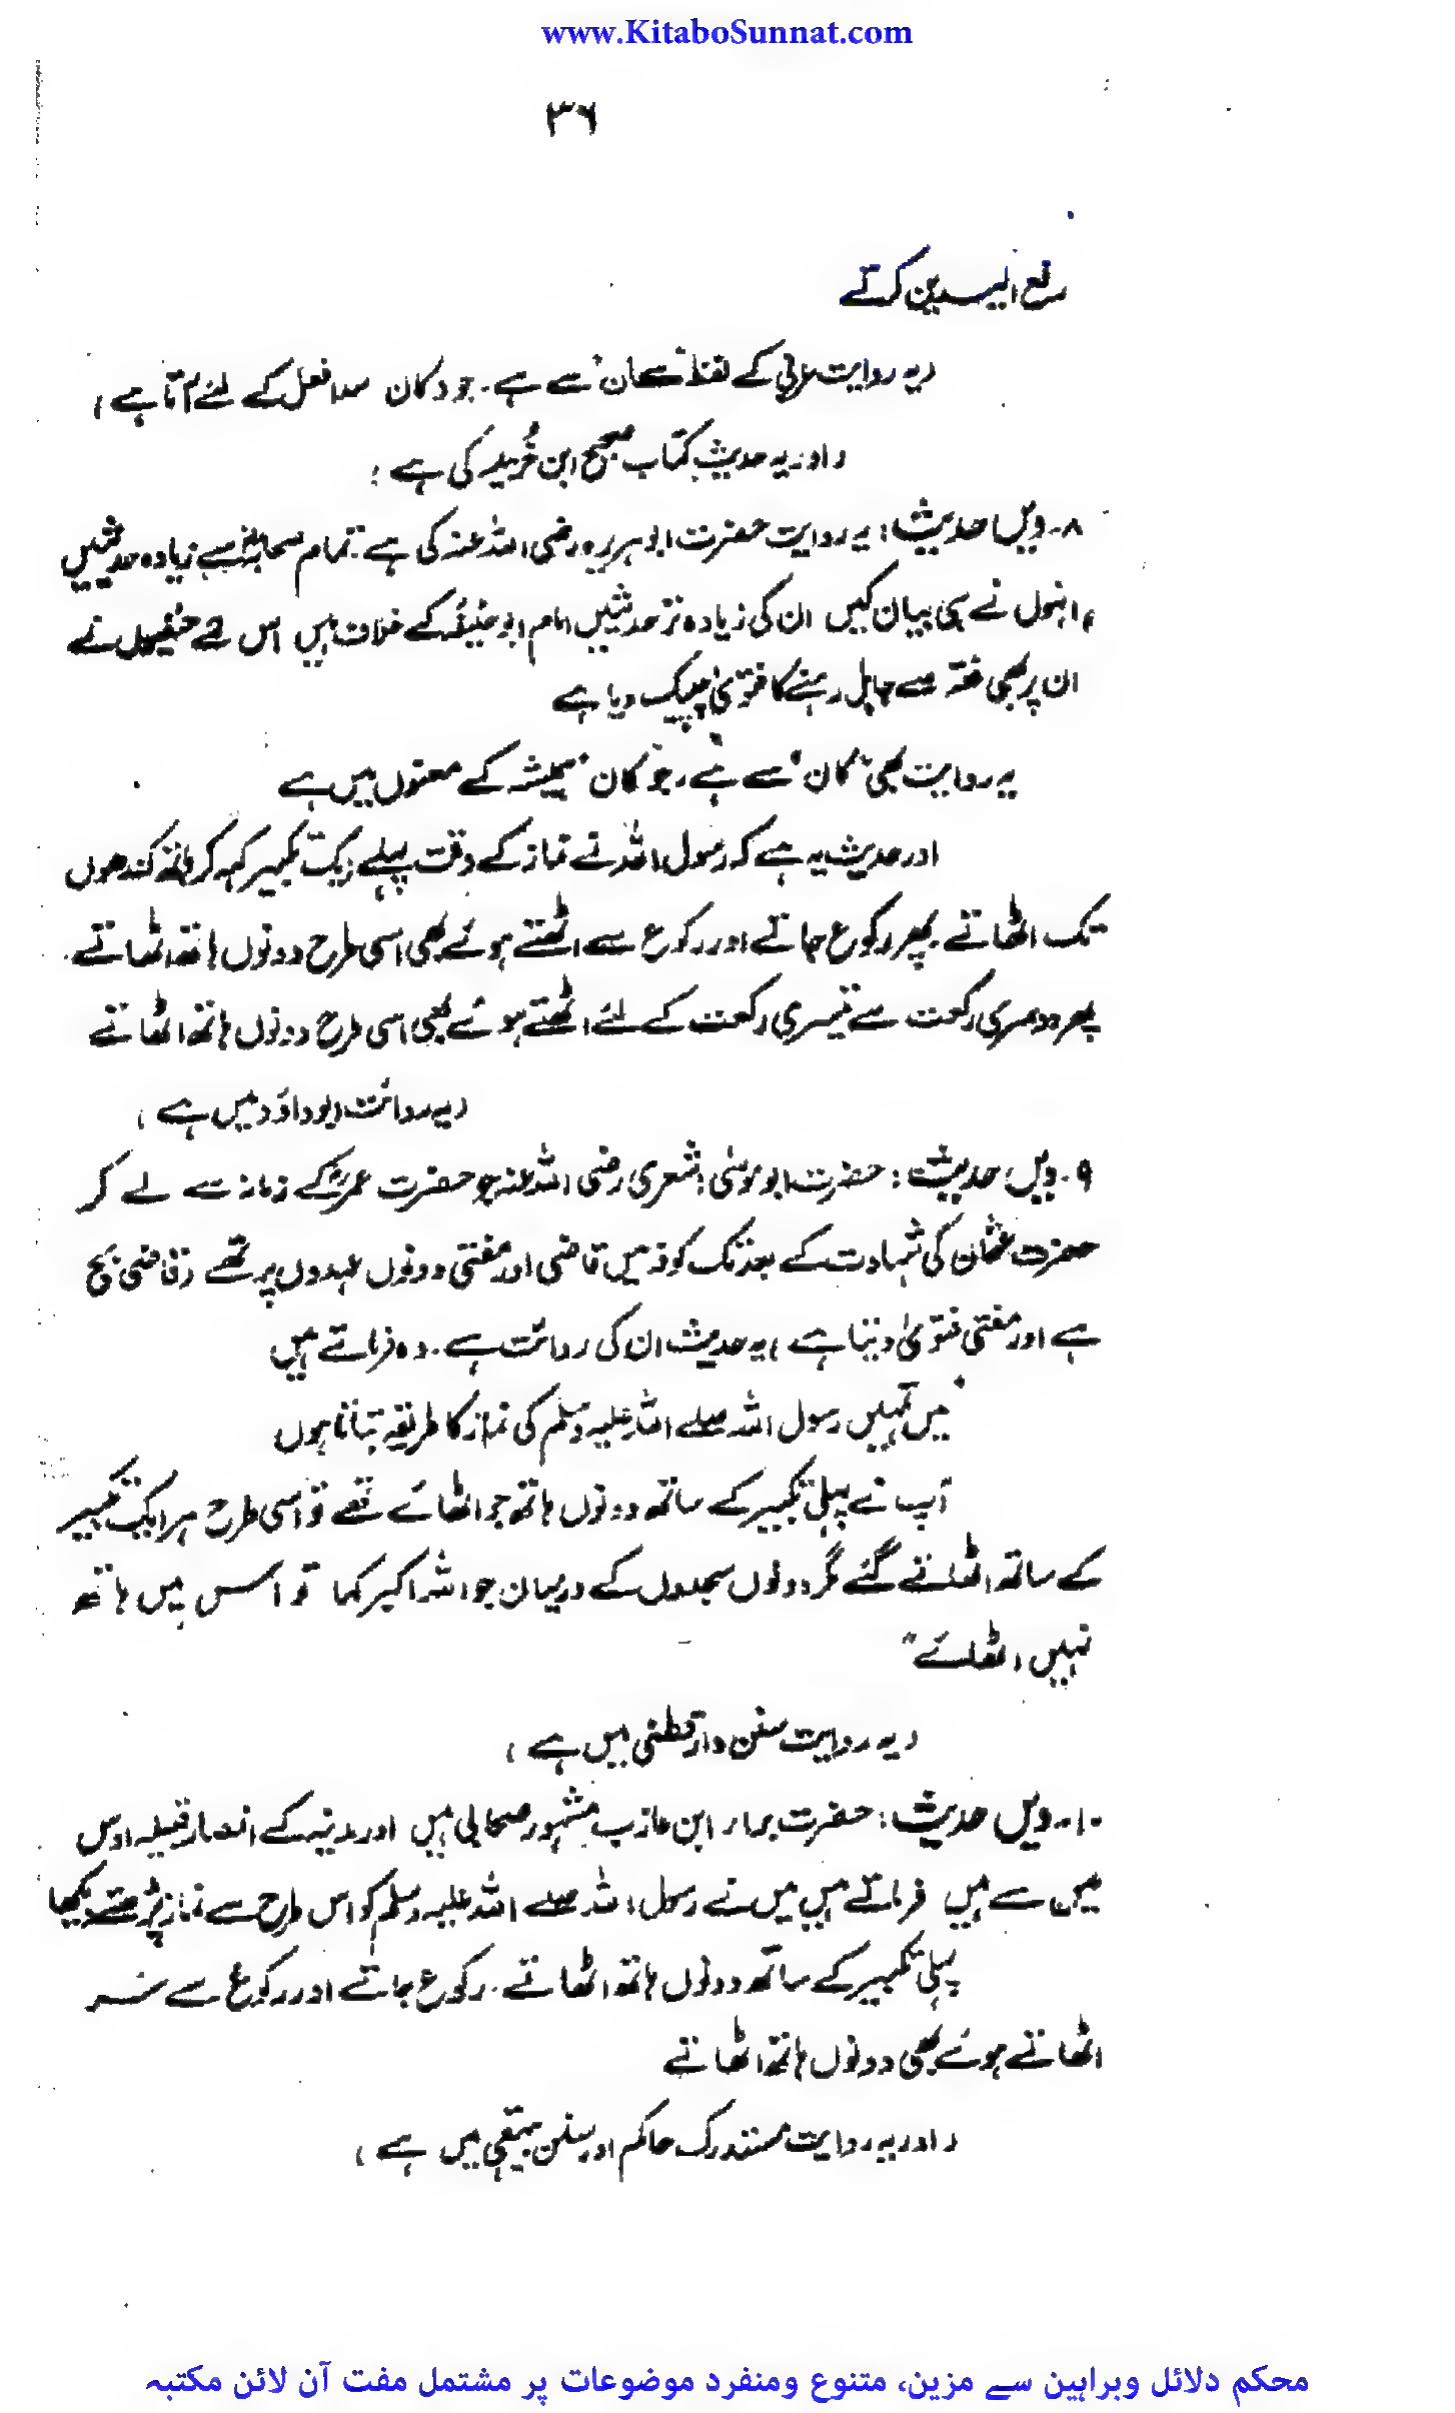 www.KitaboSunnat.com
۳۶
رفع الیدین کرتے
(یہ روایت عربی کے لفظ "کان" سے ہے۔ جو دکان سدا فعل کے لئے آتا ہے)
(اور یہ حدیث کتاب صحیح ابن خُزیمہ کی ہے)
۸۔ ویں حدیث: یہ روایت حضرت ابو ہریرہ رضی اللہ عنہ کی ہے۔ تمام صحابہؓ سے زیادہ حدیثیں
انہوں نے ہی بیان کیں ان کی زیادہ تر حدیثیں امام ابو حنیفہؒ کے خلاف ہیں اس لئے حنفیوں نے
ان پر بھی فقہ سے جاہل رہنے کا فتویٰ چپک دیا ہے
یہ روایت بھی "کان" سے ہے، جو کان "ہمیشہ کے معنوں میں ہے
اور حدیث یہ ہے کہ رسول اللہ نے نماز کے وقت پہلے ایک تکبیر کہہ کر ہاتھ کندھوں
تک اٹھاتے پھر رکوع جاتے اور رکوع سے اٹھتے ہوئے بھی اسی طرح دونوں ہاتھ اٹھاتے۔
پھر دوسری رکعت سے تیسری رکعت کے لئے اٹھتے ہوئے بھی اسی طرح دونوں ہاتھ اٹھاتے
(یہ روائت ابو داؤد میں ہے)
۹۔ ویں حدیث: حضرت ابو موسیٰ اشعری رضی اللہ عنہ جو حضرت عمرؓ کے زمانہ سے لے کر
حضرت عثمان کی شہادت کے بعد تک کوفہ میں قاضی اور مفتی دونوں عہدوں پر تھے (قاضی جج
ہے اور مفتی فتویٰ دیتا ہے) یہ حدیث ان کی روائت ہے۔ وہ فرماتے ہیں
"میں تمہیں رسول اللہ صلے اللہ علیہ وسلم کی نماز کا طریقہ بتاتا ہوں
آپ نے پہلی تکبیر کے ساتھ دونوں ہاتھ جو اٹھائے تھے تو اسی طرح ہر ایک تکبیر
کے ساتھ اٹھاتے گئے مگر دونوں سجدوں کے درمیان جو اللہ اکبر کہا تو اس میں ہاتھ
نہیں اٹھائے"
(یہ روایت سنن دارقطنی میں ہے)
۱۰۔ ویں حدیث: حضرت براء ابن عازب مشہور صحابی ہیں اور مدینہ کے انصار قبیلہ اوس
میں سے ہیں فرماتے ہیں میں نے رسول اللہ صلے اللہ علیہ وسلم کو اس طرح سے نماز پڑھتے دیکھا
پہلی تکبیر کے ساتھ دونوں ہاتھ اٹھاتے۔ رکوع جاتے اور رکوع سے سر
اٹھاتے ہوئے بھی دونوں ہاتھ اٹھاتے
(اور یہ روایت مستدرک حاکم اور سنن بیہقی میں ہے)
محکم دلائل وبراہین سے مزین، متنوع ومنفرد موضوعات پر مشتمل مفت آن لائن مکتبہ